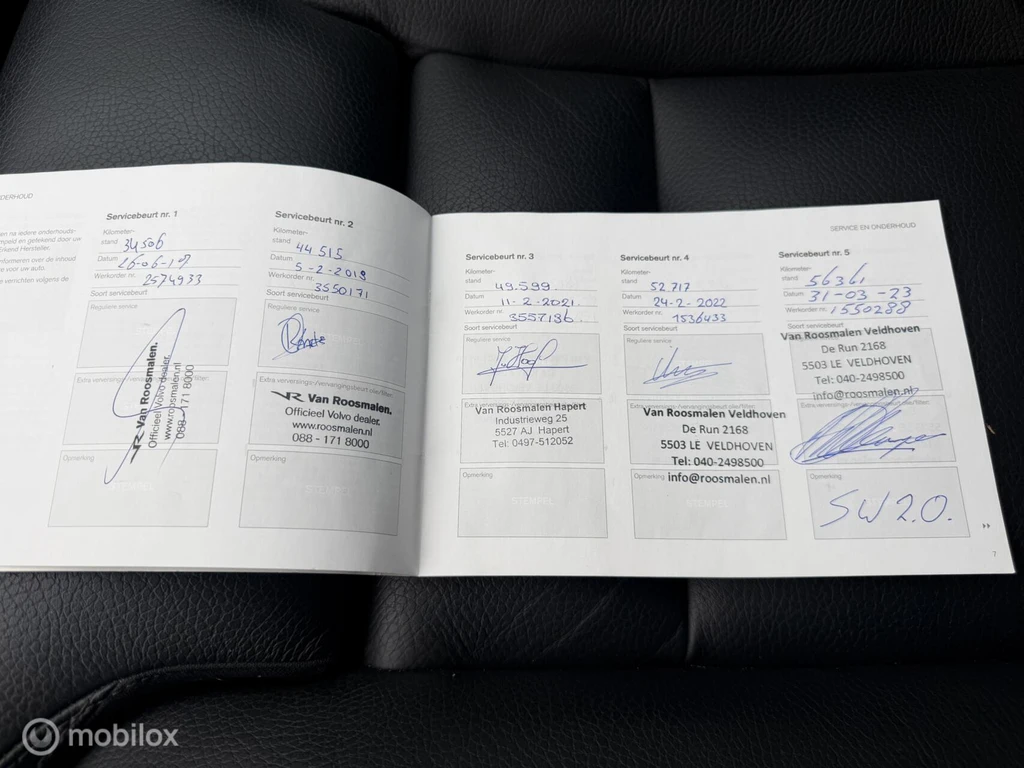 NDERHOUD
en na iedere onderhouds-
empeld en getekend door uw
Erkend Hersteller.
nformeren over de inhoud
e voor uw auto.
e verrichten volgens de
Servicebeurt nr. 1
Kilometer-
stand 34506
Datum 26-06-17
Werkorder nr. 2574933
Soort servicebeurt
Reguliere service
Extra verversings-/vervangingsbeurt olie/filter:
Van Roosmalen.
Officieel Volvo dealer.
www.roosmalen.nl
088-171 8000
Opmerking
STEMPEL
Servicebeurt nr. 2
Kilometer-
stand 44.515
Datum 5-2-2019
Werkorder nr. 3550171
Soort servicebeurt
Reguliere service
Extra verversings-/vervangingsbeurt olie/filter:
VR Van Roosmalen.
Officieel Volvo dealer.
www.roosmalen.nl
088 - 171 8000
Opmerking
STEMPEL
SERVICE EN ONDERHOUD
Servicebeurt nr. 3
Kilometer-
stand 49.599
Datum 11-2-2021
Werkorder nr. 3557196
Soort servicebeurt
Reguliere service
Van Roosmalen Hapert
Industrieweg 25
5527 AJ Hapert
Tel: 0497-512052
Opmerking
STEMPEL
Servicebeurt nr. 4
Kilometer-
stand 52.717
Datum 24-2-2022
Werkorder nr. 1536433
Soort servicebeurt
Reguliere service
Van Roosmalen Veldhoven
De Run 2168
5503 LE VELDHOVEN
Tel: 040-2498500
Opmerking info@roosmalen.nl
STEMPEL
Servicebeurt nr. 5
Kilometer-
stand 56361
Datum 31-03-23
Werkorder nr. 1550288
Soort servicebeurt
Van Roosmalen Veldhoven
De Run 2168
5503 LE VELDHOVEN
Tel: 040-2498500
info@roosmalen.nl
Opmerking
SW 2.0.
7
mobilox